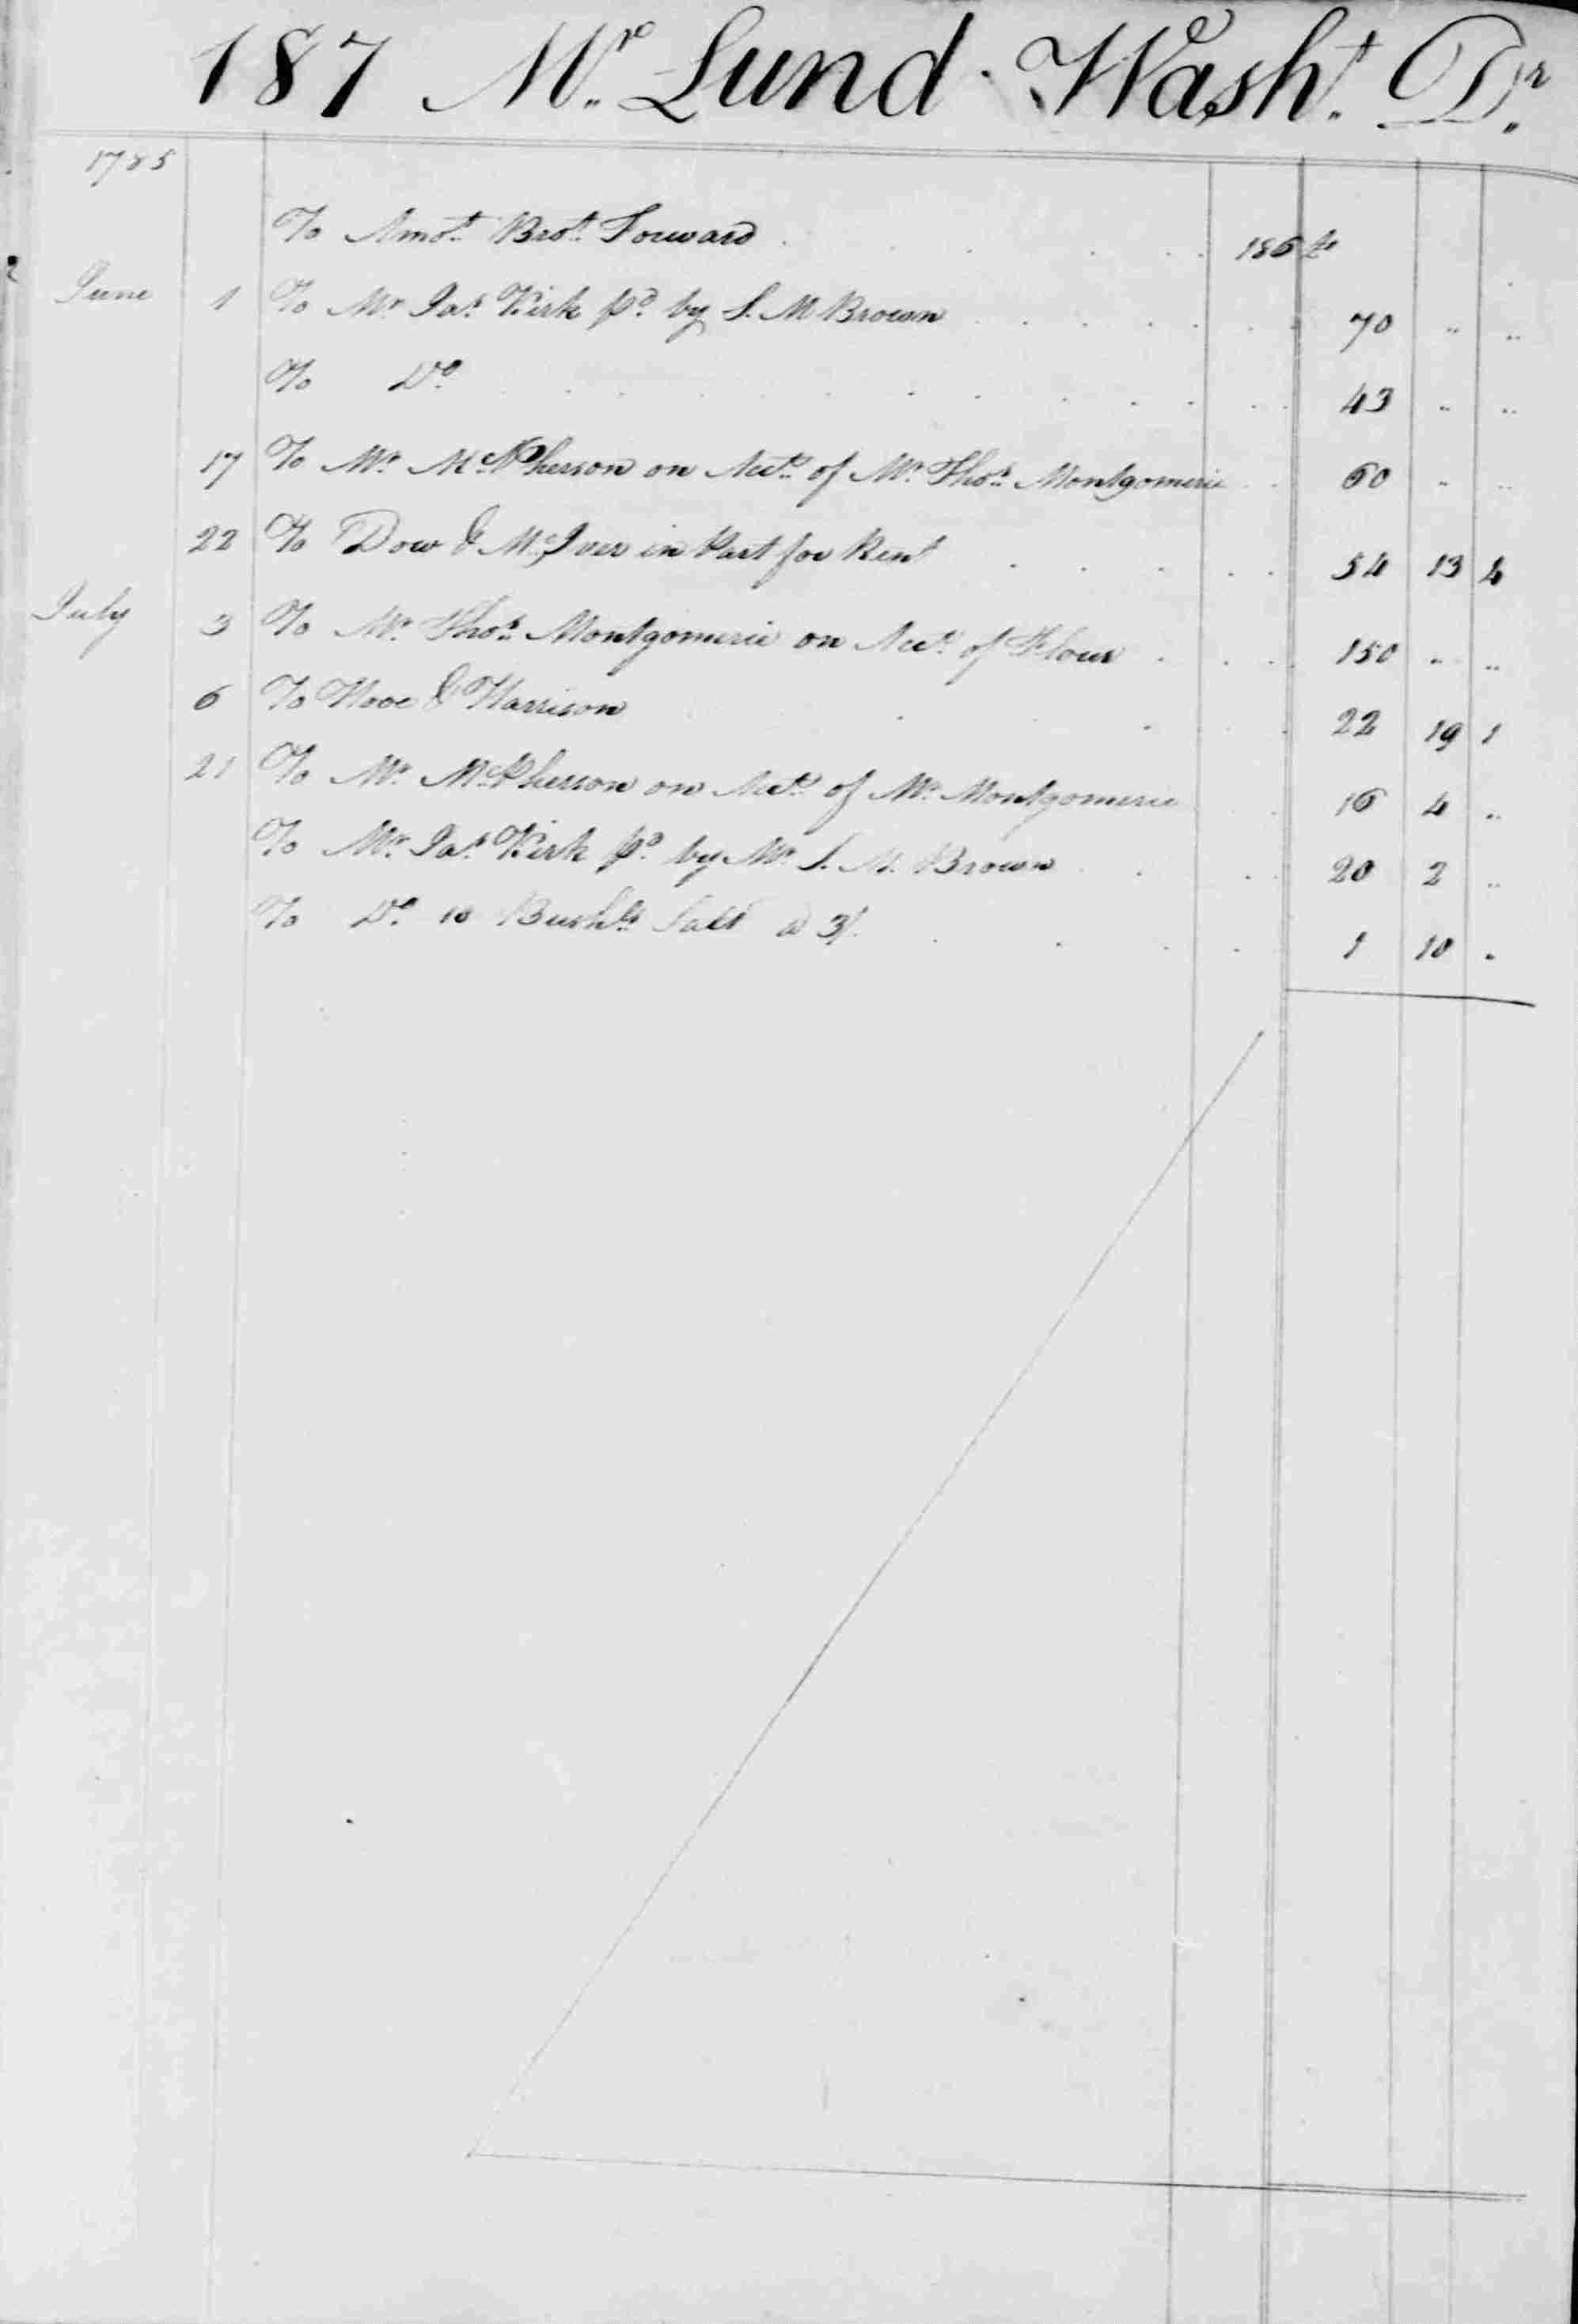 187 Mr. Lund Washt. Dr.
1785
To Amot. Brot. Forward 186
June 1 To Mr Jas. Kirk pd. by S. M Brown 70 .. ..
To Do. 43 .. ..
17 To Mr McPherson on Acct. of Mr Thos. Montgomerie 60 .. ..
22 To Dow & McIver in Part for Rent 54 13 4
July 3 To Mr. Thos. Montgomerie on Acct. of Flour 150 .. ..
6 To Hooe & Harrison 22 19 1
21 To Mr. McPherson on Acct. of Mr. Montgomerie 16 4 ..
To Mr. Jas. Kirk pd. by Mr. S. M. Brown 20 2 ..
To Do. 10 Bushls Salt @ 3/. 1 10 .